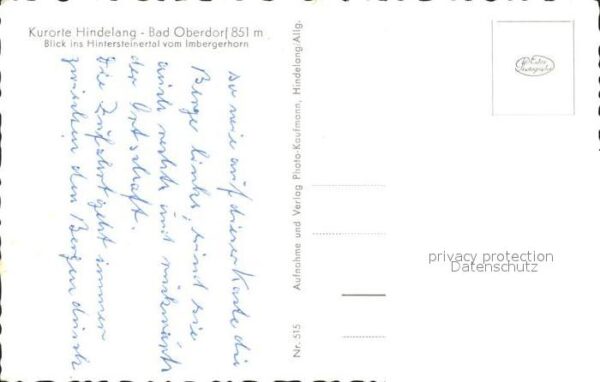 Kurorte Hindelang - Bad Oberdorf 851 m
Blick ins Hintersteinertal vom Imbergerhorn
So wie auf dieser Karte die
Berge links, sind sie
auch rechts und
der Ortschaft.
Die Zufahrt geht immer
zwischen den Bergen durch.
Nr. 515 Aufnahme und Verlag Photo-Kaufmann, Hindelang/Allg.
Echte
Photographie
privacy protection
Datenschutz